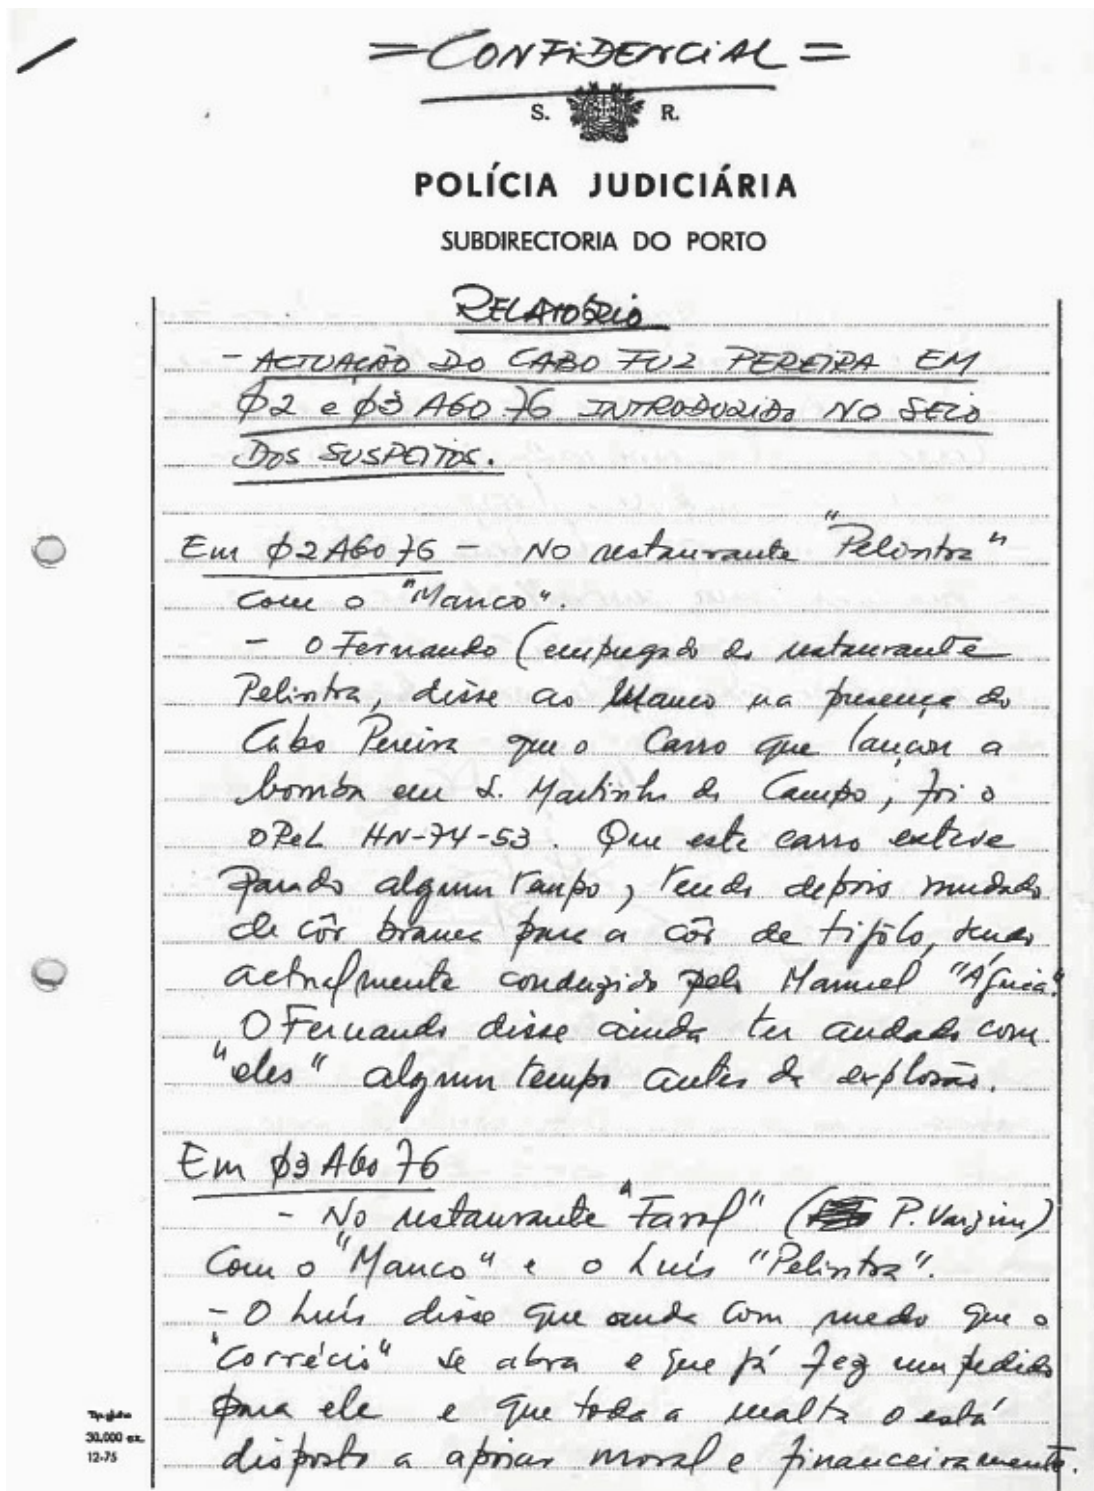 = CONFIDENCIAL =
S. R.
POLÍCIA JUDICIÁRIA
SUBDIRECTORIA DO PORTO
RELATÓRIO
- ACTUAÇÃO DO CABO FUZ PEREIRA EM
Ø2 e Ø3 AGO 76 INTRODUZIDO NO SEIO
DOS SUSPEITOS.
Em Ø2 AGO 76 - No restaurante "Pelintra"
com o "Manco".
- O Fernando (empregado do restaurante
Pelintra, disse ao Manco na presença do
Cabo Pereira que o Carro que lançou a
bomba em S. Martinho do Campo, foi o
OPEL HN-74-53. Que este carro esteve
Parado algum tempo, tendo depois mudado
de côr branca para a côr de tijolo, sendo
actualmente conduzido pelo Manuel "Águia".
O Fernando disse ainda ter andado com
"eles" algum tempo antes da explosão.
Em Ø3 AGO 76
- No restaurante "Farol" (P. Varzim)
Com o "Manco" e o Luís "Pelintra".
- O Luís disse que anda com medo que o
"Corrécio" se abra e que já fez um pedido
para ele e que toda a malta o está
disposto a apoiar moral e financeiramente.
30.000 ex.
12-75